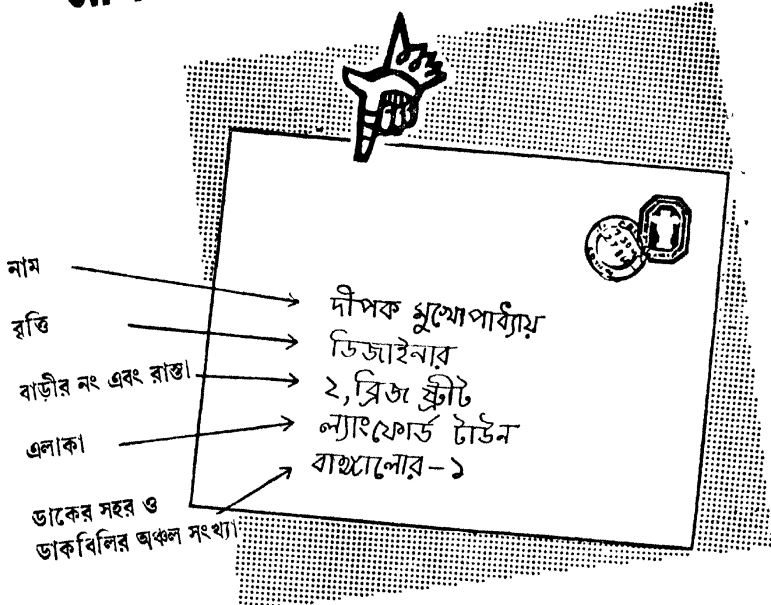 নাম
বৃত্তি
বাড়ীর নং এবং রাস্তা
এলাকা
ডাকের সহর ও
ডাকবিলির অঞ্চল সংখ্যা
দীপক মুখোপাধ্যায়
ডিজাইনার
২, ব্রিজ ষ্ট্রীট
ল্যাংফোর্ড টাউন
বাঙ্গালোর-১